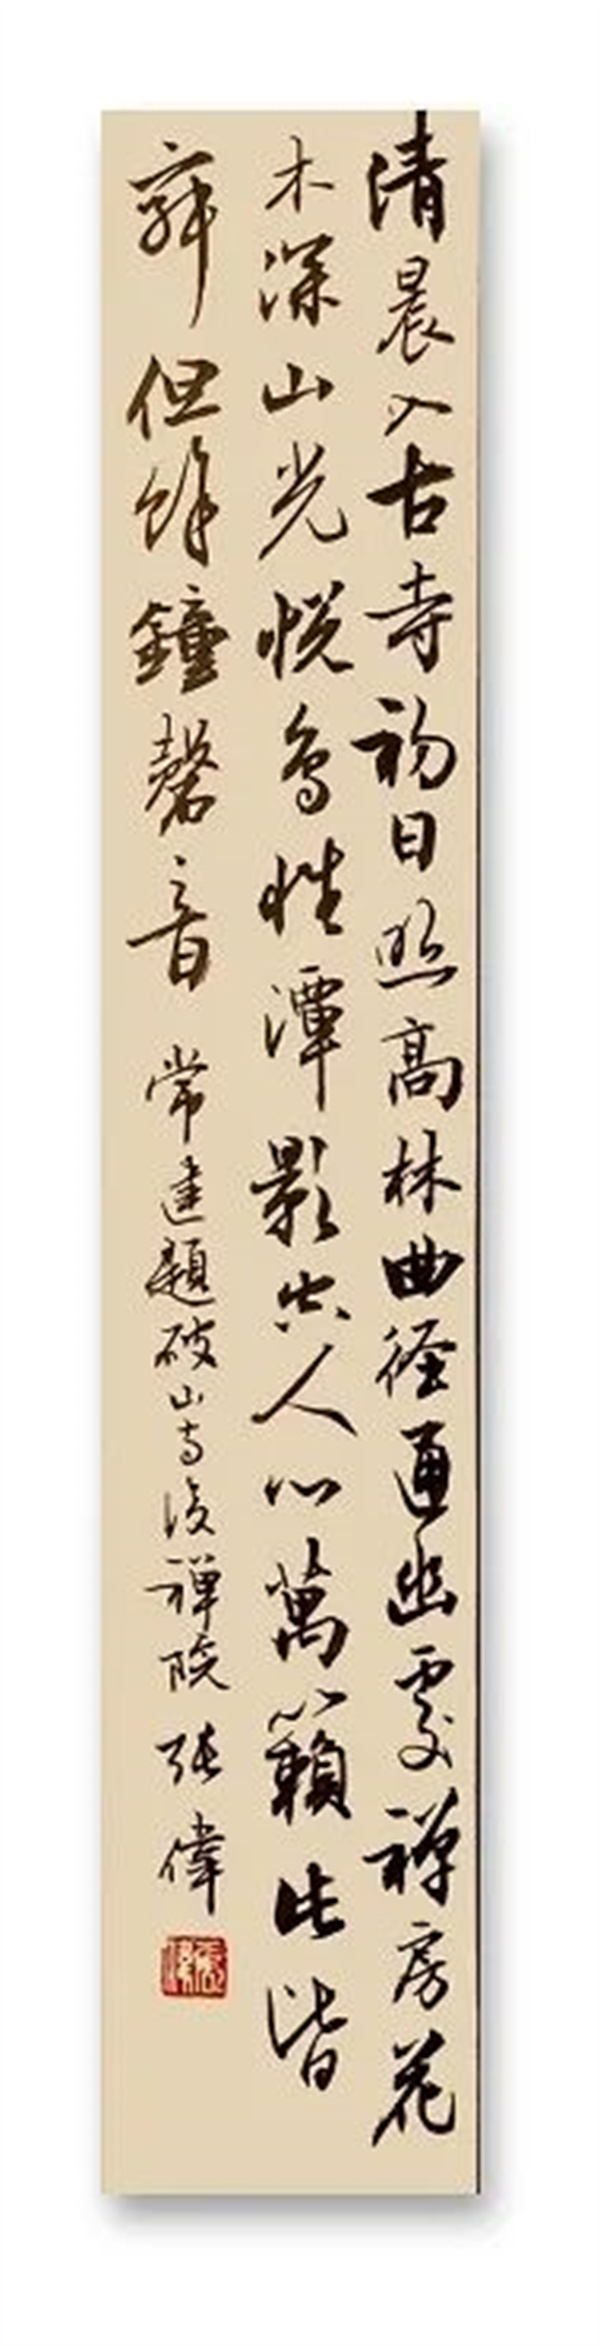 清晨入古寺初日照高林曲径通幽處禅房花
木深山光悦鳥性潭影空人心萬籟此皆
寂但餘鐘磬音 常建題破山寺後禅院 張偉
張偉